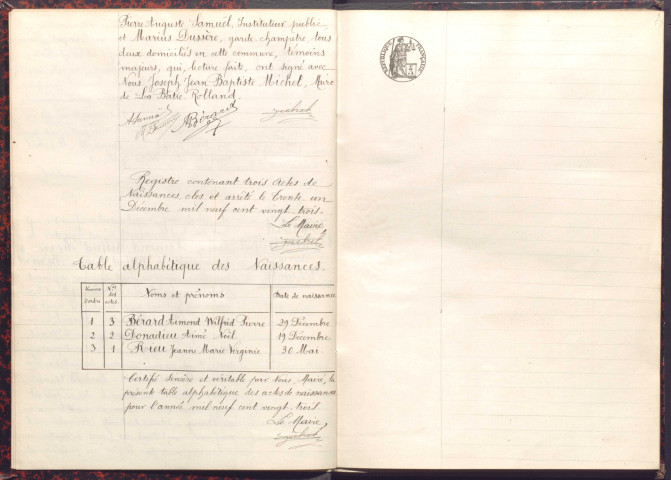 Pierre Auguste Samuel, Instituteur public
et Marius Dussère, garde-champetre, tous
deux domiciliés en cette commune, témoins
majeurs, qui, lecture faite, ont signé avec
Nous, Joseph Jean Baptiste Michel, Maire
de La Batie-Rolland.
ASamuel
ABérard
Registre contenant trois Actes de
Naissances, clos et arrêté le trente-un
Décembre mil neuf cent vingt-trois.
Le Maire,
Table alphabétique des Naissances.
Numéros d'ordre Nos des actes Noms et prénoms Date de naissance
1 3 Bérard Aimond Wilfrid Pierre 29 Décembre
2 2 Donadieu Aimé Noël 19 Décembre
3 1 Rieu Jeanne Marie Virginie 30 Mai
Certifié sincère et véritable par Nous, Maire, la
présente table alphabétique des actes de naissances
pour l'année mil neuf cent vingt-trois.
Le Maire,
REPUBLIQUE FRANÇAISE